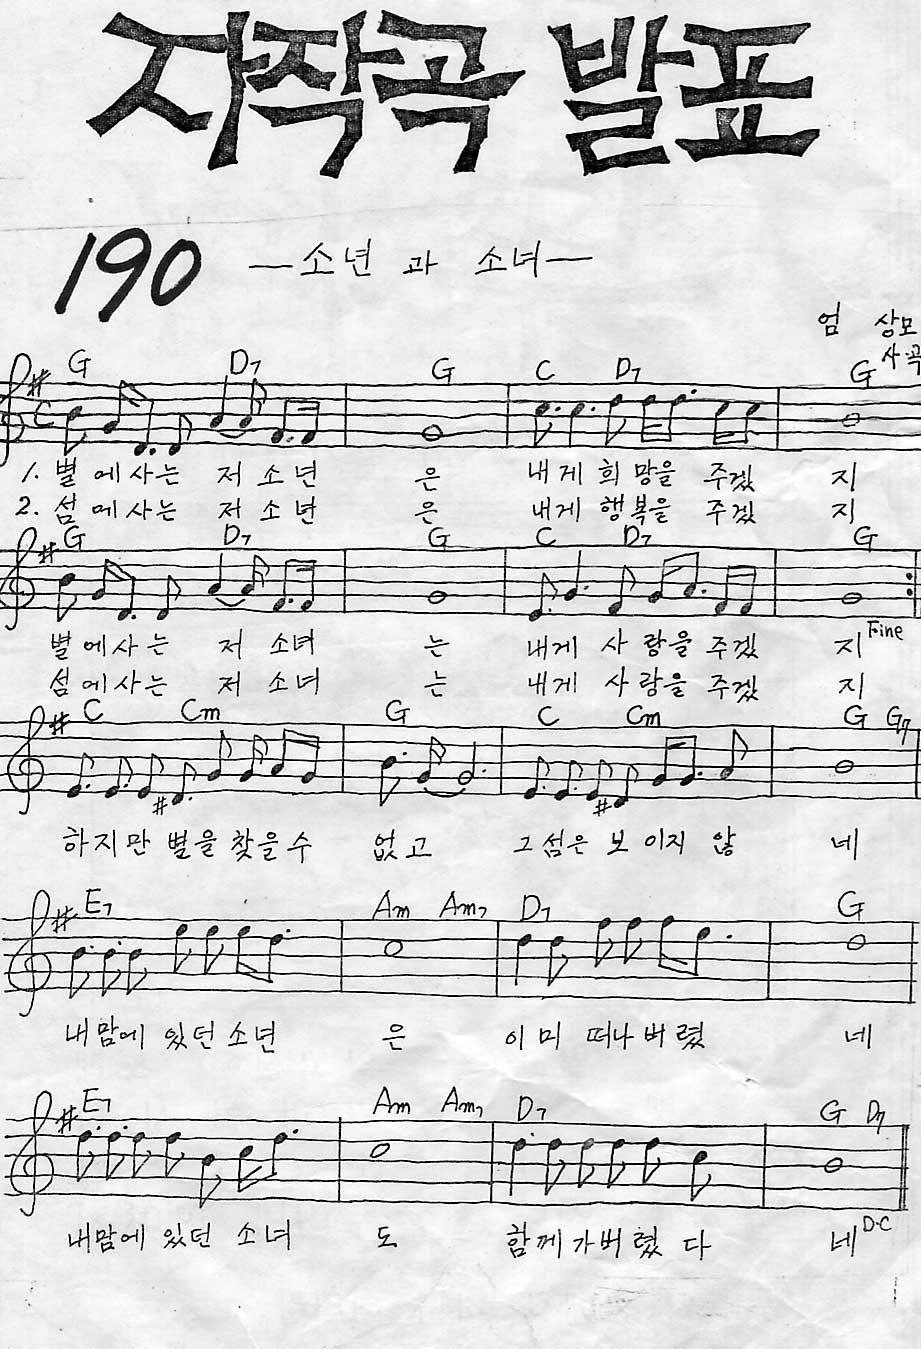 자작곡 발표
190 —소년 과 소녀—
엄 상모
사·곡
G D7 G C D7 G
1. 별에사는 저 소년 은 내게 희망을 주겠 지
2. 섬에사는 저 소년 은 내게 행복을 주겠 지
G D7 G C D7 G
별에사는 저 소녀 는 내게 사랑을 주겠 지 Fine
섬에사는 저 소녀 는 내게 사랑을 주겠 지
C Cm G C Cm G G7
하지만 별을 찾을수 없고 그섬은 보이지 않 네
E7 Am Am7 D7 G
내맘에 있던 소년 은 이미 떠나버렸 네
E7 Am Am7 D7 G D7
내맘에 있던 소녀 도 함께가버렸 다 네 D.C